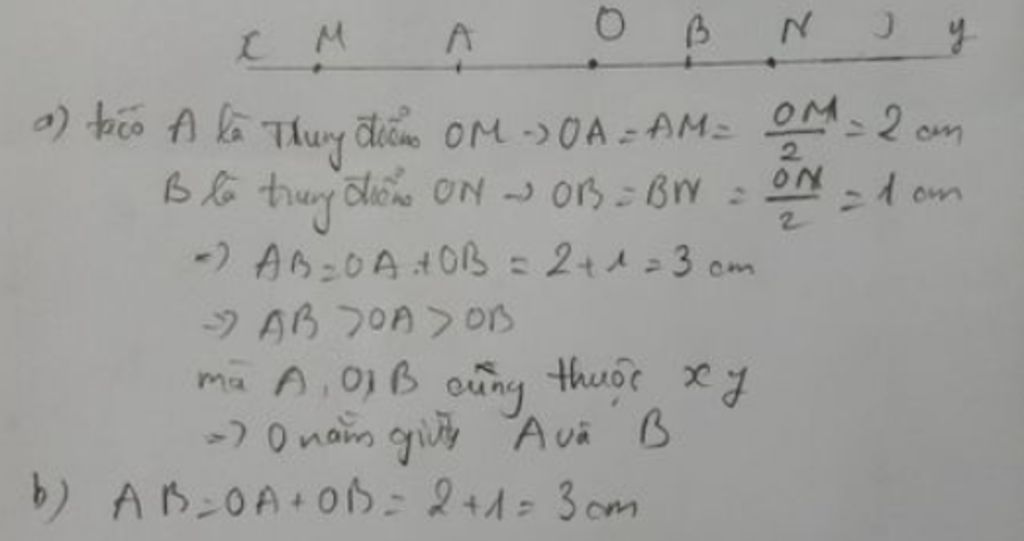 x M A O B N y
a) ta có A là Trung điểm OM -> OA = AM = OM/2 = 2 cm
B là trung điểm ON -> OB = BN = ON/2 = 1 cm
=> AB = OA + OB = 2 + 1 = 3 cm
=> AB > OA > OB
mà A, O, B cũng thuộc xy
=> O nằm giữa A và B
b) AB = OA + OB = 2 + 1 = 3 cm